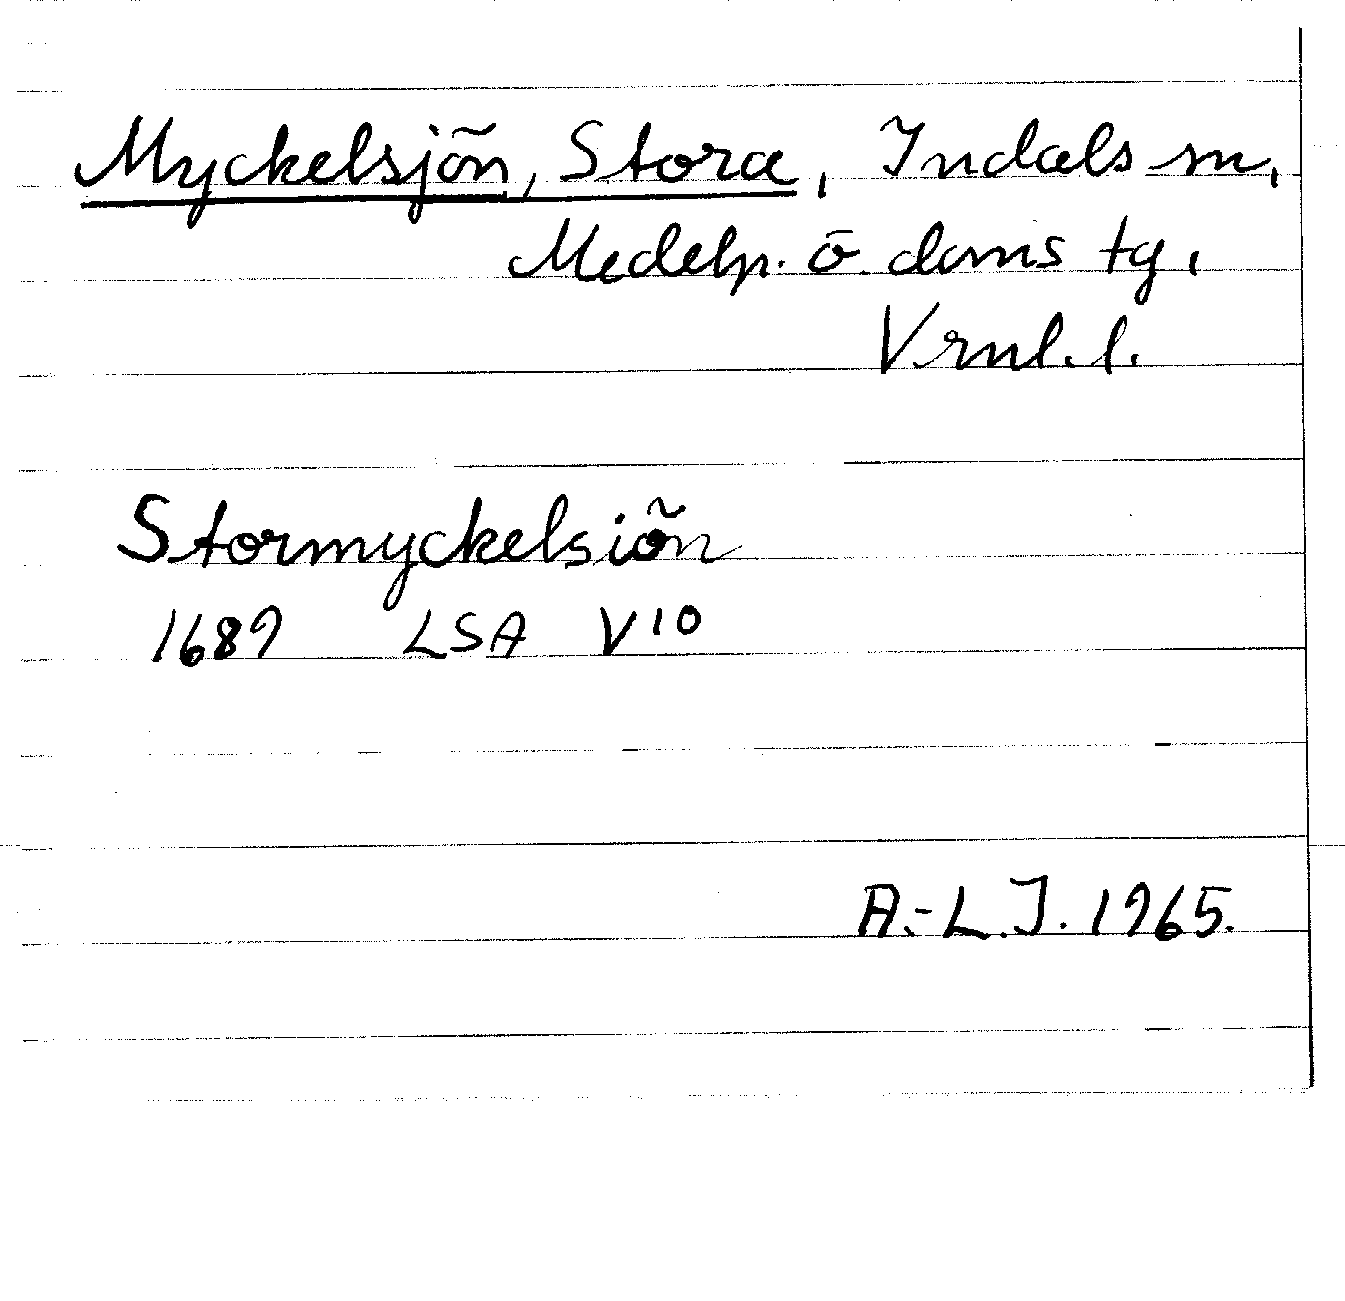 Myckelsjön, Stora, Indals sn,
Medelp. ö. doms tg,
Vrnl. l.
Stormyckelsiön
1689 LSA V10
A.-L.J. 1965.